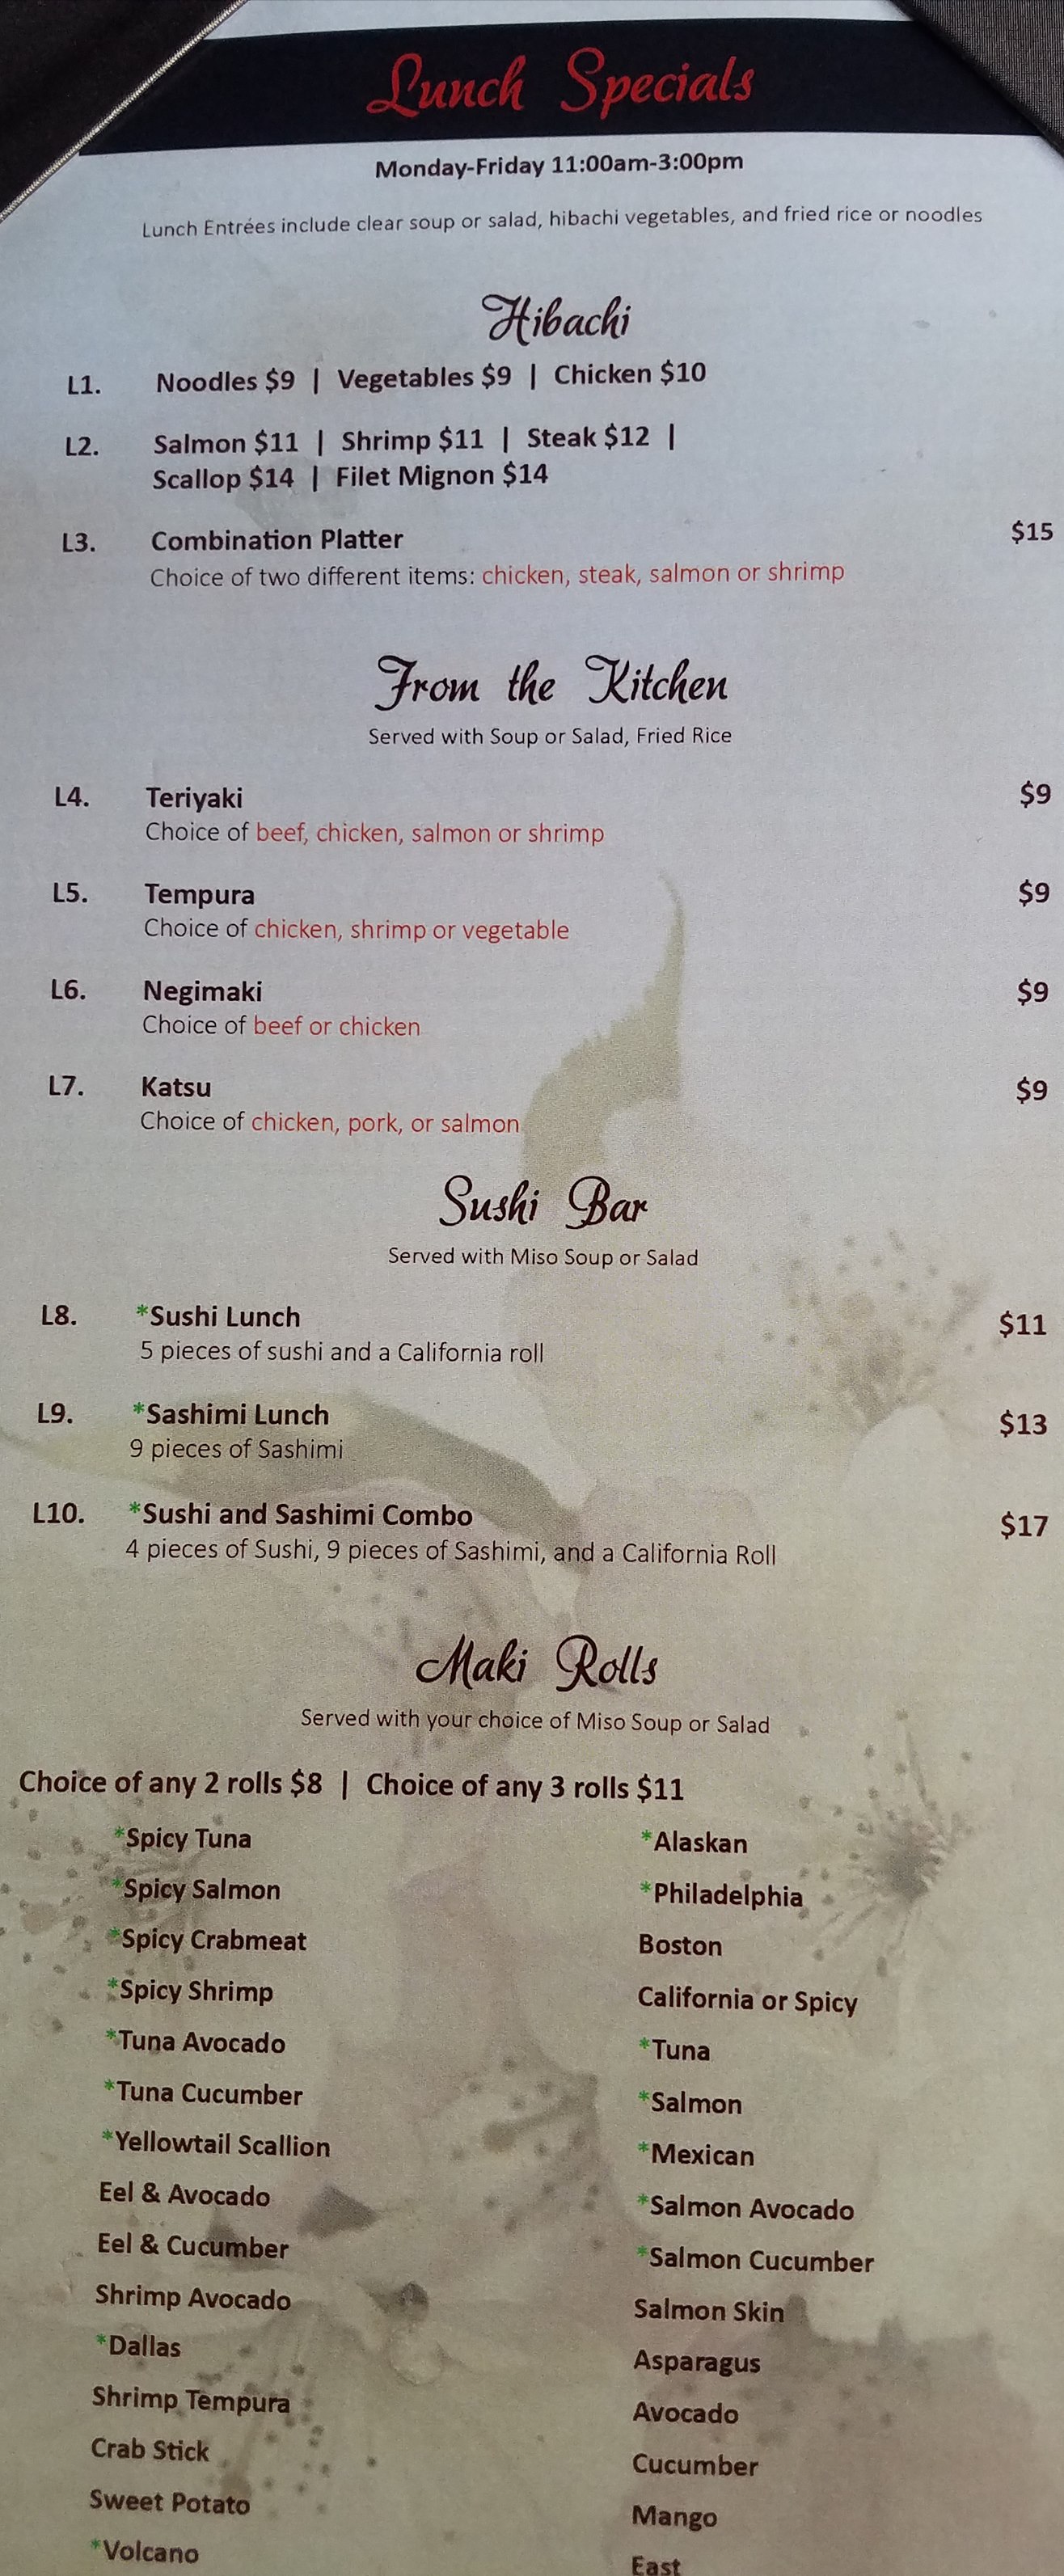 Lunch Specials
Monday-Friday 11:00am-3:00pm
Lunch Entrées include clear soup or salad, hibachi vegetables, and fried rice or noodles
Hibachi
L1. Noodles $9 | Vegetables $9 | Chicken $10
L2. Salmon $11 | Shrimp $11 | Steak $12 |
Scallop $14 | Filet Mignon $14
L3. Combination Platter $15
Choice of two different items: chicken, steak, salmon or shrimp
From the Kitchen
Served with Soup or Salad, Fried Rice
L4. Teriyaki $9
Choice of beef, chicken, salmon or shrimp
L5. Tempura $9
Choice of chicken, shrimp or vegetable
L6. Negimaki $9
Choice of beef or chicken
L7. Katsu $9
Choice of chicken, pork, or salmon
Sushi Bar
Served with Miso Soup or Salad
L8. *Sushi Lunch $11
5 pieces of sushi and a California roll
L9. *Sashimi Lunch $13
9 pieces of Sashimi
L10. *Sushi and Sashimi Combo $17
4 pieces of Sushi, 9 pieces of Sashimi, and a California Roll
Maki Rolls
Served with your choice of Miso Soup or Salad
Choice of any 2 rolls $8 | Choice of any 3 rolls $11
*Spicy Tuna
*Spicy Salmon
*Spicy Crabmeat
*Spicy Shrimp
*Tuna Avocado
*Tuna Cucumber
*Yellowtail Scallion
Eel & Avocado
Eel & Cucumber
Shrimp Avocado
*Dallas
Shrimp Tempura
Crab Stick
Sweet Potato
*Volcano
*Alaskan
*Philadelphia
Boston
California or Spicy
*Tuna
*Salmon
*Mexican
*Salmon Avocado
*Salmon Cucumber
Salmon Skin
Asparagus
Avocado
Cucumber
Mango
East